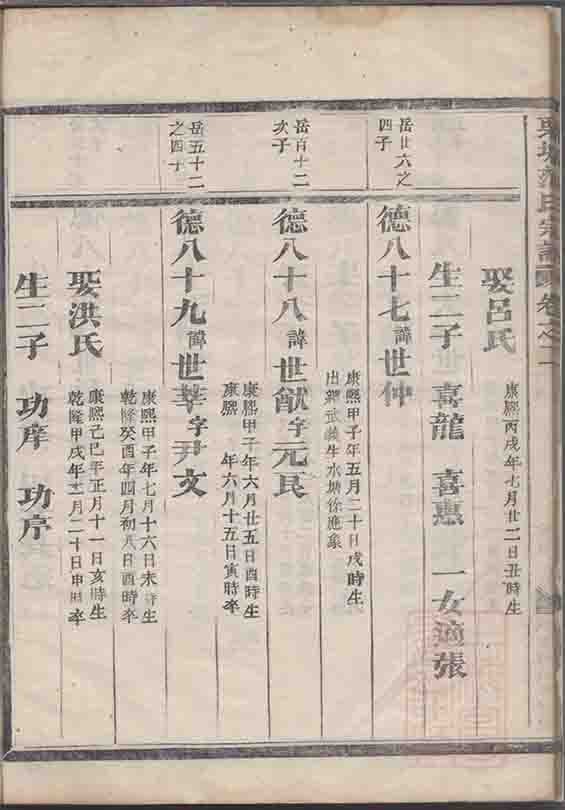 氏宗譜 卷之二
娶呂氏 康熙丙戌年七月廿二日丑時生
生二子 喜龍 喜惠 一女適張
岳廿六之四子
德八十七諱世仲
康熙甲子年五月二十日戌時生
出繼武義生水塘徐應象
岳百十二次子
德八十八諱世猷字元民
康熙甲子年六月廿五日酉時生
康熙 年六月十五日寅時卒
岳五十二之四子
德八十九諱世莘字尹文
康熙甲子年七月十六日未時生
乾隆癸酉年四月初八日酉時卒
娶洪氏
康熙己巳年正月十一日亥時生
乾隆甲戌年 月二十日申時卒
生二子 功庠 功序